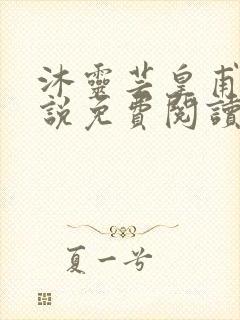 沐靈芸皇甫
說免費閱讀
夏一兮